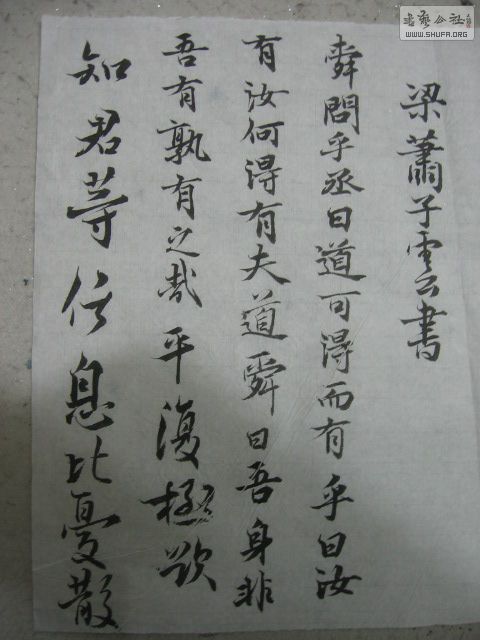 梁蕭子雲書
舜問乎丞曰道可得而有乎曰汝
有汝何得有夫道舜曰吾身非
吾有孰有之哉平復極欲
知君等信息比憂散
書藝公社
WWW.SHUFA.ORG